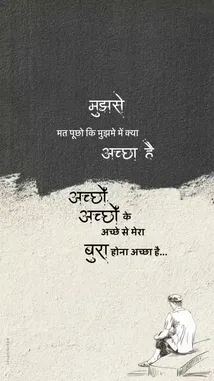 मुझसे
मत पूछो कि मुझमे में क्या
अच्छा है
अच्छों
अच्छों के
अच्छे से मेरा
बुरा होना अच्छा है...